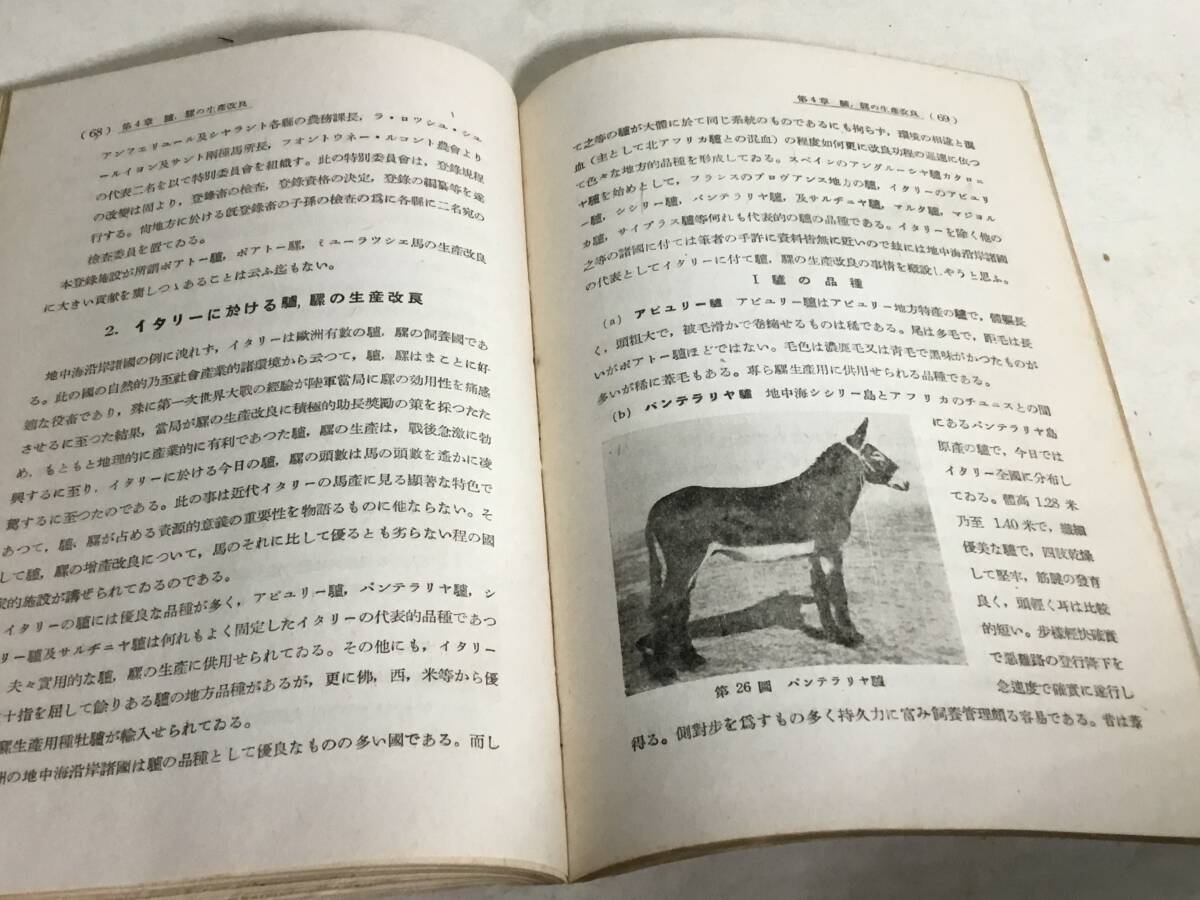 (68) 第4章 驢,騾の生産改良
アンフェリユール及シヤラント各縣の農務課長,ラ・ロツシユ・シユ
ールイヨン及サント兩種馬所長,フォントウネー・ルコント農會より
の代表二名を以て特別委員會を組織す。此の特別委員會は,登錄規程
の改變は固より,登錄畜の檢査,登錄資格の決定,登錄の編纂等を遂
行する。尙地方に於ける旣登錄畜の子孫の檢査の爲に各縣に二名宛の
檢査委員を置てゐる。
本登錄施設が所謂ポアトー驢,ポアトー騾,ミユーラツシエ馬の生産改良
に大きい貢獻を齎しつゝあることは云ふ迄もない。
2. イタリーに於ける驢,騾の生産改良
地中海沿岸諸國の例に洩れず,イタリーは歐洲有數の驢,騾の飼養國であ
る。此の國の自然的乃至社會産業的諸環境から云つて,驢,騾はまことに好
適な役畜であり,殊に第一次世界大戰の經驗が陸軍當局に騾の効用性を痛感
させるに至つた結果,當局が騾の生産改良に積極的助長奬勵の策を採つたた
め,もともと地理的に産業的に有利であつた驢,騾の生産は,戰後急激に勃
興するに至り,イタリーに於ける今日の驢,騾の頭數は馬の頭數を遙かに凌
駕するに至つたのである。此の事は近代イタリーの馬產に見る顯著な特色で
あつて,驢,騾が占める資源的意義の重要性を物語るものに他ならない。そ
して驢,騾の增産改良について,馬のそれに比して優るとも劣らない程の國
家的施設が講ぜられてゐるのである。
イタリーの驢には優良な品種が多く,アピユリー驢,パンテラリヤ驢,シ
リー驢及サルヂニヤ驢は何れもよく固定したイタリーの代表的品種であつ
夫々實用的な驢,騾の生産に供用せられてゐる。その他にも,イタリー
十指を屈して餘りある驢の地方品種があるが,更に佛,西,米等から優
騾生產用種牡驢が輸入せられてゐる。
洲の地中海沿岸諸國は驢の品種として優良なものの多い國である。而し
第4章 驢,騾の生産改良 (69)
て之等の驢が大體に於て同じ系統のものであるにも拘らず,環境の相違と混
血(主として北アフリカ驢との混血)の程度如何更に改良功程の遲速に依つ
て色々な地方的品種を形成してゐる。スペインのアングルーシヤ驢カタロニ
ヤ驢を始めとして,フランスのプロヴアンス地方の驢,イタリーのアピユリ
ー驢,シシリー驢,パンテラリヤ驢,及サルヂユヤ驢,マルタ驢,マジヨル
カ驢,サイプラス驢等何れも代表的の驢の品種である。イタリーを除く他の
之等の諸國に付ては筆者の手許に資料皆無に近いので玆には地中海沿岸諸國
の代表としてイタリーに付て驢,騾の生産改良の事情を槪說しやうと思ふ。
I 驢の品種
(a) アピユリー驢 アピユリー驢はアピユリー地方特産の驢で,體軀長
く,頭粗大で,被毛滑かで卷縮せるものは稀である。尾は多毛で,距毛は長
いがポアトー驢ほどではない。毛色は濃鹿毛又は靑毛で黑味がかつたものが
多いが稀に葦毛もある。專ら騾生産用に供用せられる品種である。
(b) パンテラリヤ驢 地中海シシリー島とアフリカのチユニスとの間
にあるパンテラリヤ島
原産の驢で,今日では
イタリー全國に分布し
てゐる。體高1.28米
乃至 1.40米で,纖細
優美な驢で,四肢乾燥
して堅牢,筋腱の發育
良く,頭輕く耳は比較
的短い。步樣輕快確實
で惡難路の登行降下を
急速度で確實に遂行し
第26圖 パンテラリヤ驢
得る。側對步を爲すもの多く持久力に富み飼養管理頗る容易である。昔は葦